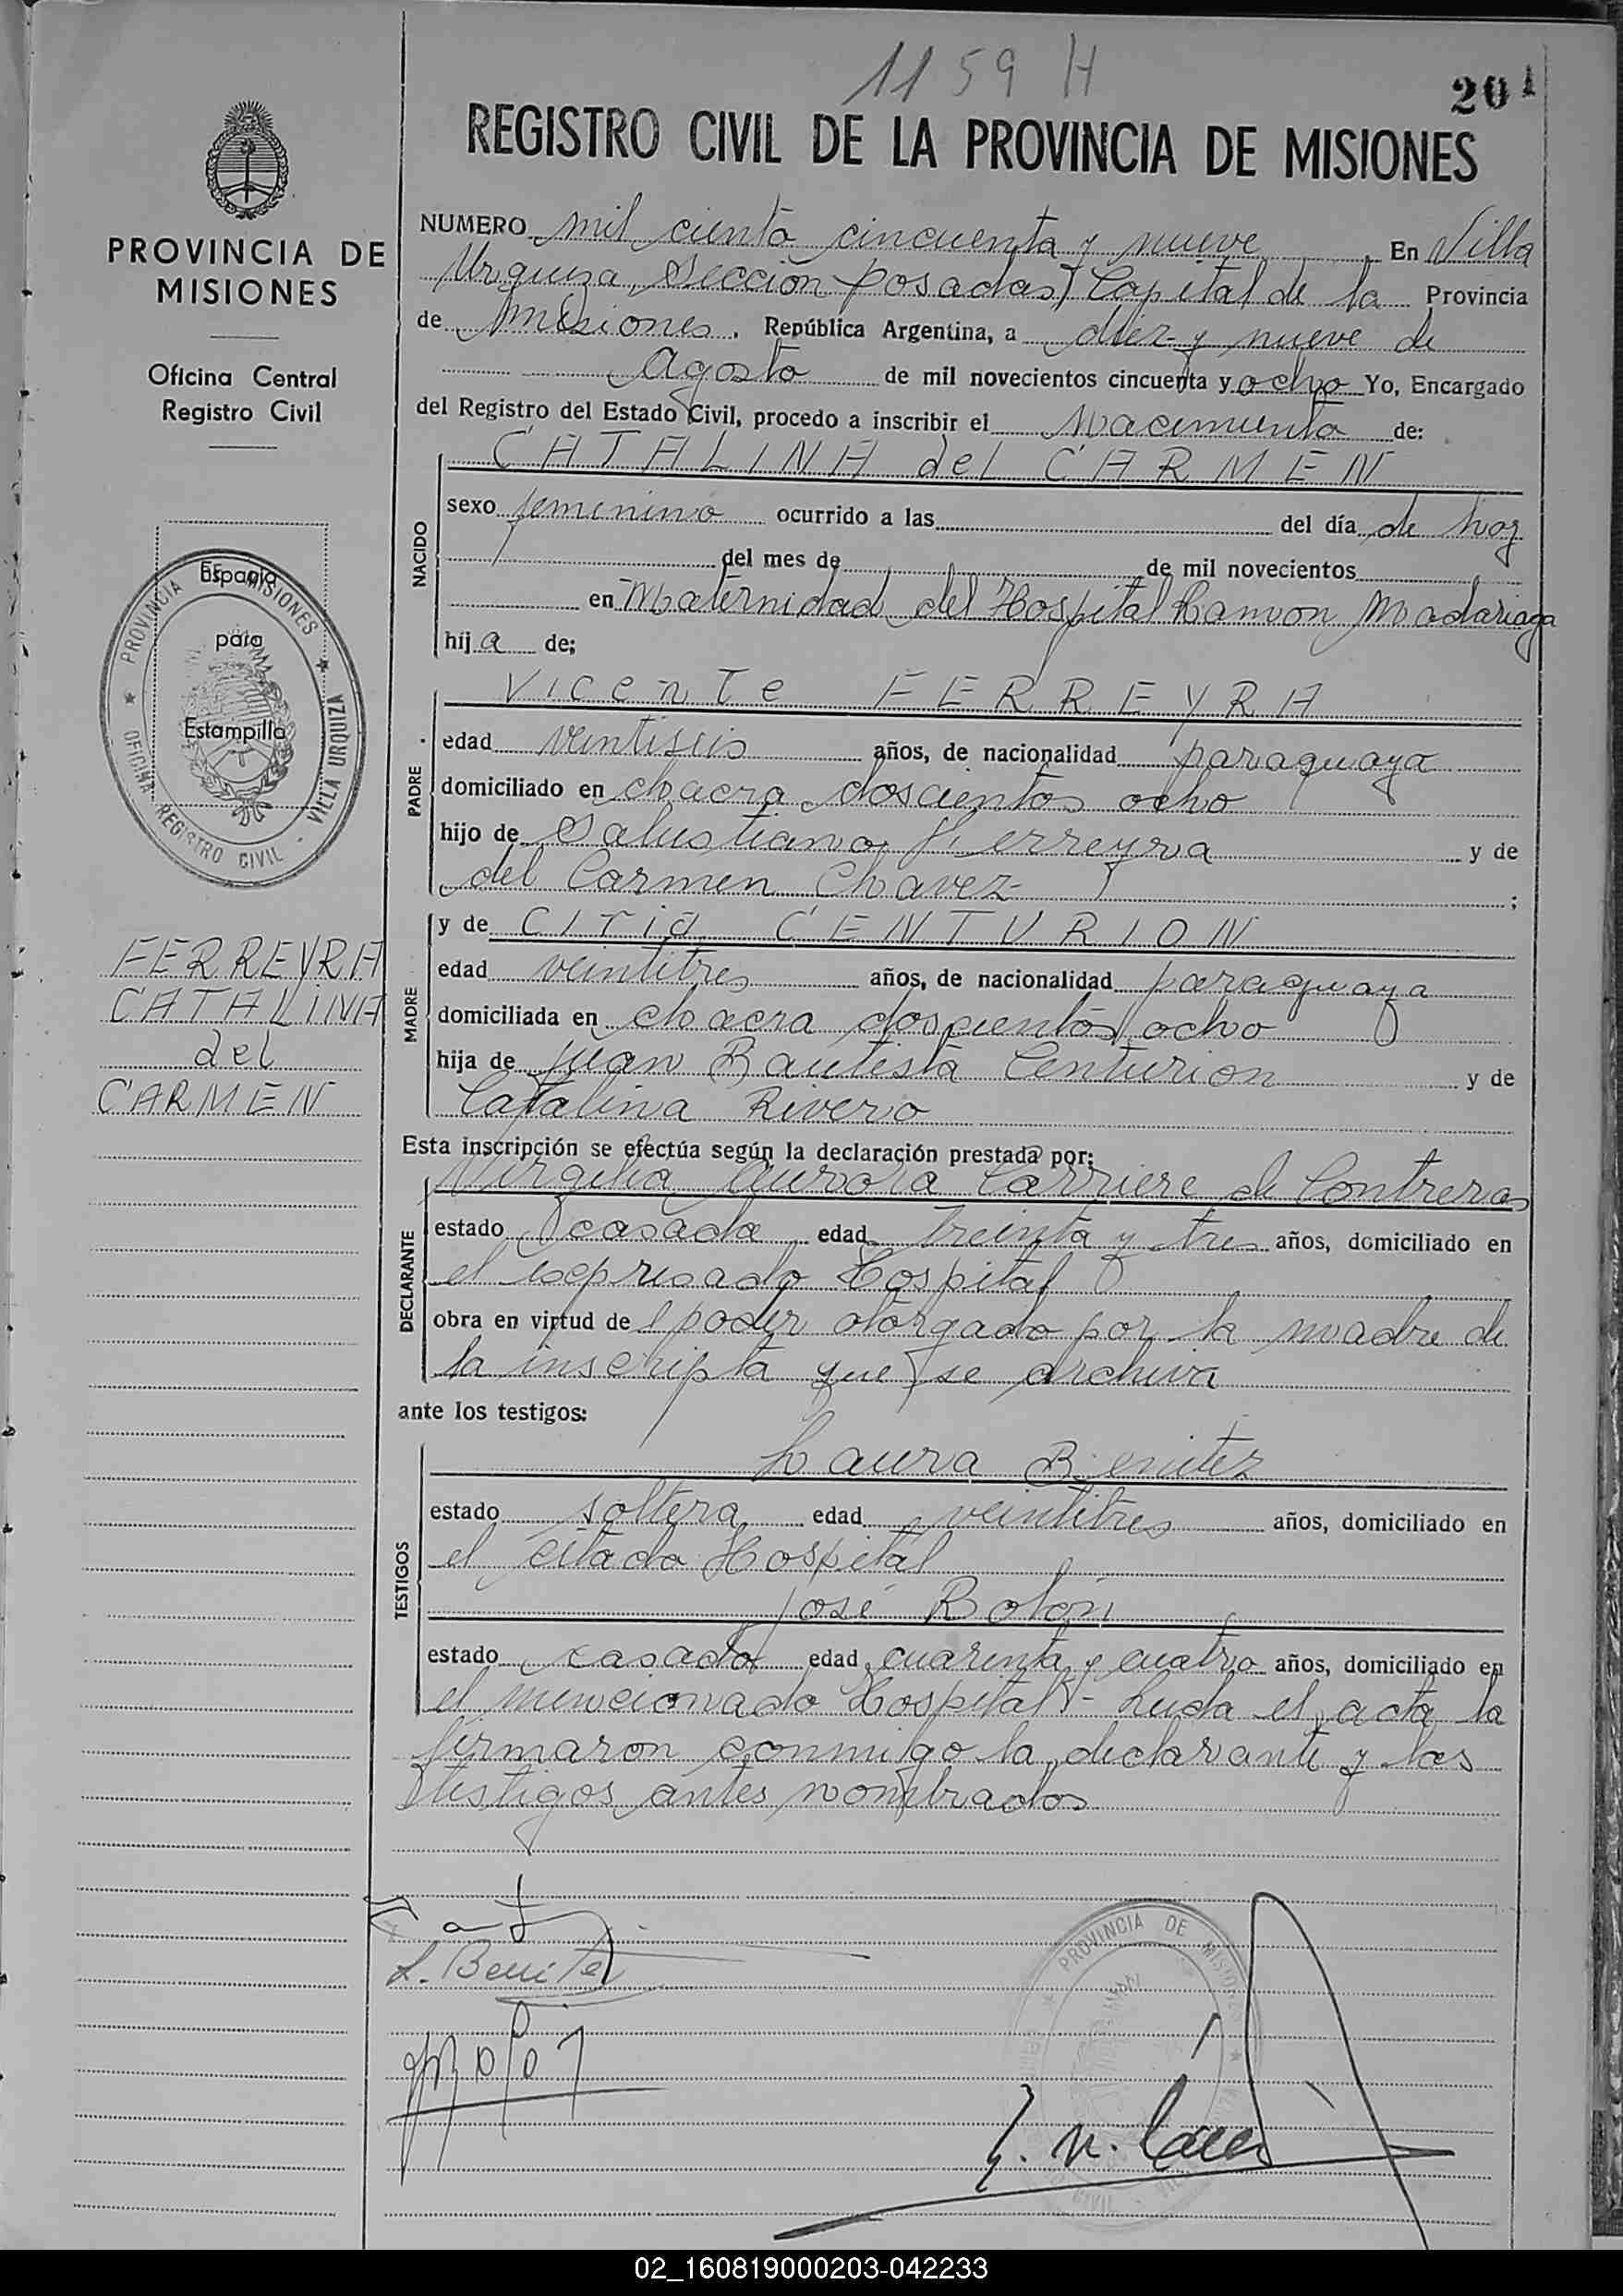 1159 H
201
REGISTRO CIVIL DE LA PROVINCIA DE MISIONES
PROVINCIA DE
MISIONES
Oficina Central
Registro Civil
Espacio
para
Estampilla
PROVINCIA DE MISIONES
OFICINA REGISTRO CIVIL - VILLA URQUIZA
FERREYRA
CATALINA
del
CARMEN
NUMERO mil ciento cincuenta y nueve En Villa
Urquiza, Sección Posadas, Capital de la Provincia
de Misiones, República Argentina, a diez y nueve de
Agosto de mil novecientos cincuenta y ocho Yo, Encargado
del Registro del Estado Civil, procedo a inscribir el Nacimiento de:
NACIDO
CATALINA del CARMEN
sexo femenino ocurrido a las del día de hoy
del mes de de mil novecientos
en Maternidad del Hospital Ramon Madariaga
hija de;
PADRE
Vicente FERREYRA
edad veintiseis años, de nacionalidad paraguaya
domiciliado en chacra doscientos ocho
hijo de Salustiano Ferreyra y de
del Carmen Chavez ;
MADRE
y de CENTURION
edad veintitres años, de nacionalidad paraguaya
domiciliada en chacra doscientos ocho
hija de Juan Bautista Centurion y de
Catalina Rivero
Esta inscripción se efectúa según la declaración prestada por:
DECLARANTE
Virgilia Aurora Carriere de Contreras
estado casada edad treinta y tres años, domiciliado en
el expresado Hospital
obra en virtud de poder otorgado por la madre de
la inscripta que se archiva
ante los testigos:
TESTIGOS
Laura Benitez
estado soltera edad veintitres años, domiciliado en
el citado Hospital
José
estado casado edad cuarenta y cuatro años, domiciliado en
el mencionado Hospital - Leida el acta la
firmaron conmigo la declarante y los
testigos antes nombrados
L. Benitez
PROVINCIA DE MISIONES
CIVIL
02_160819000203-042233